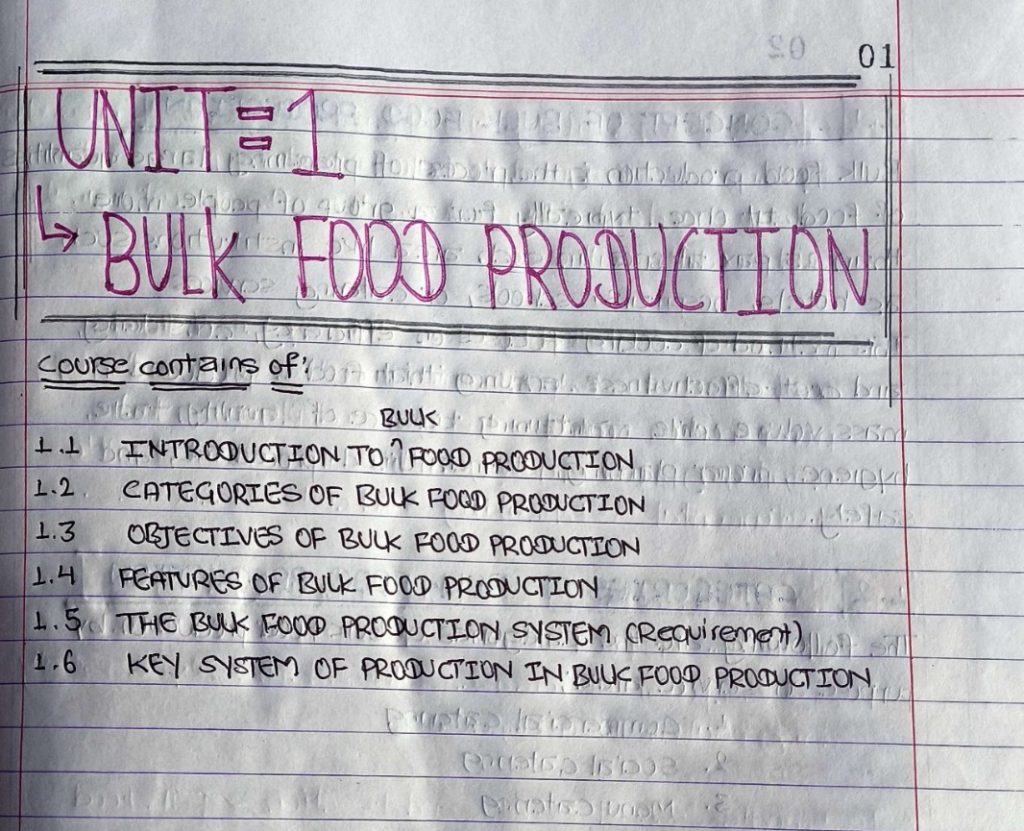 01
UNIT = 1
↳ BULK FOOD PRODUCTION
course contains of:
BULK
1.1 INTRODUCTION TO ^ FOOD PRODUCTION
1.2 CATEGORIES OF BULK FOOD PRODUCTION
1.3 OBJECTIVES OF BULK FOOD PRODUCTION
1.4 FEATURES OF BULK FOOD PRODUCTION
1.5 THE BULK FOOD PRODUCTION SYSTEM (Requirement)
1.6 KEY SYSTEM OF PRODUCTION IN BULK FOOD PRODUCTION